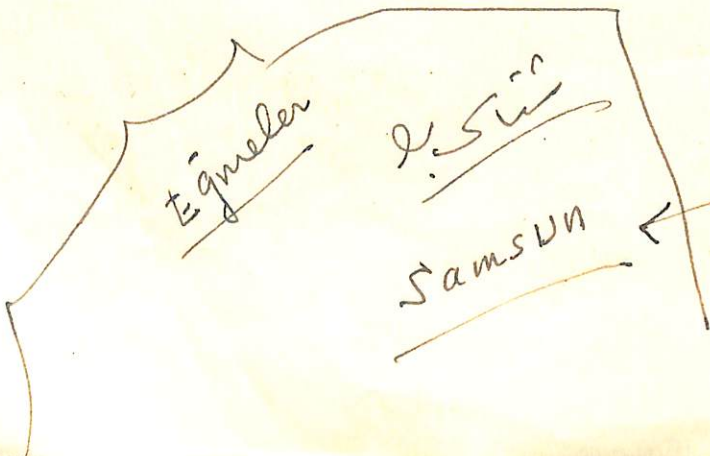 Eğmeler
Samsun